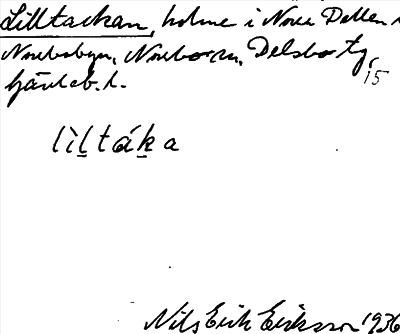 Lilltackan, holme i Norra Dellen
Norrbobyn, Norrbo sn, Delsbo tg,
15
Gävleb. l.
lìl̲táḵa
Nils Erik Eriksson 1936